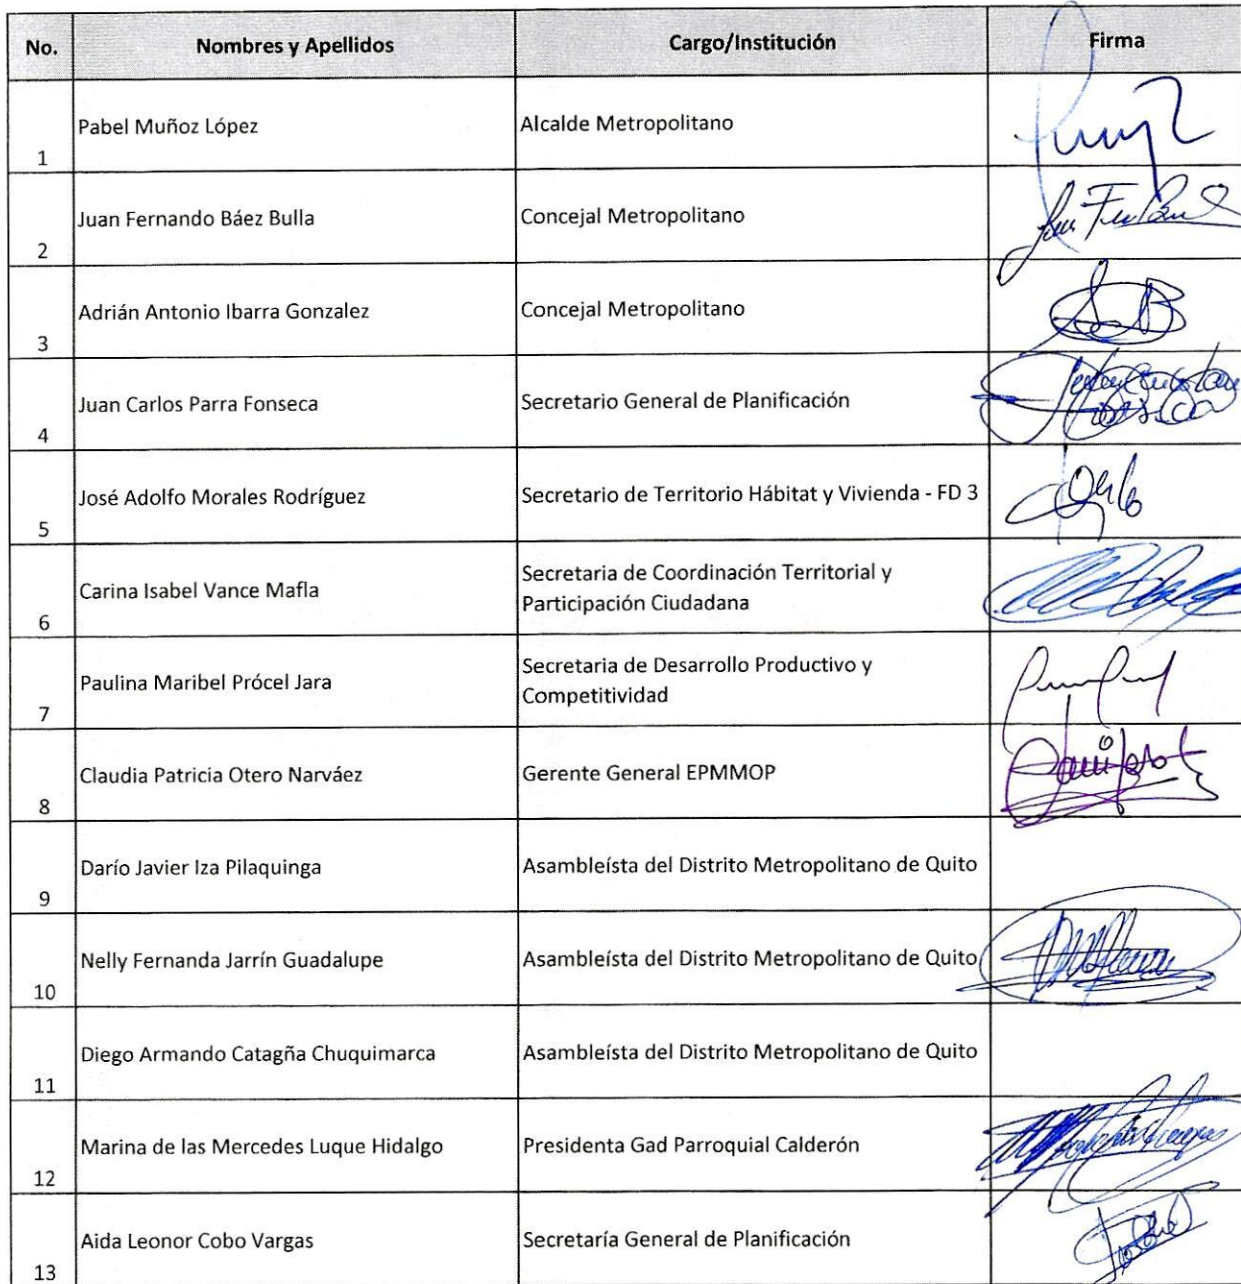 No. Nombres y Apellidos Cargo/Institución Firma
1 Pabel Muñoz López Alcalde Metropolitano
2 Juan Fernando Báez Bulla Concejal Metropolitano
3 Adrián Antonio Ibarra Gonzalez Concejal Metropolitano
4 Juan Carlos Parra Fonseca Secretario General de Planificación
5 José Adolfo Morales Rodríguez Secretario de Territorio Hábitat y Vivienda - FD 3
6 Carina Isabel Vance Mafla Secretaria de Coordinación Territorial y
Participación Ciudadana
7 Paulina Maribel Prócel Jara Secretaria de Desarrollo Productivo y
Competitividad
8 Claudia Patricia Otero Narváez Gerente General EPMMOP
9 Darío Javier Iza Pilaquinga Asambleísta del Distrito Metropolitano de Quito
10 Nelly Fernanda Jarrín Guadalupe Asambleísta del Distrito Metropolitano de Quito
11 Diego Armando Catagña Chuquimarca Asambleísta del Distrito Metropolitano de Quito
12 Marina de las Mercedes Luque Hidalgo Presidenta Gad Parroquial Calderón
13 Aida Leonor Cobo Vargas Secretaría General de Planificación